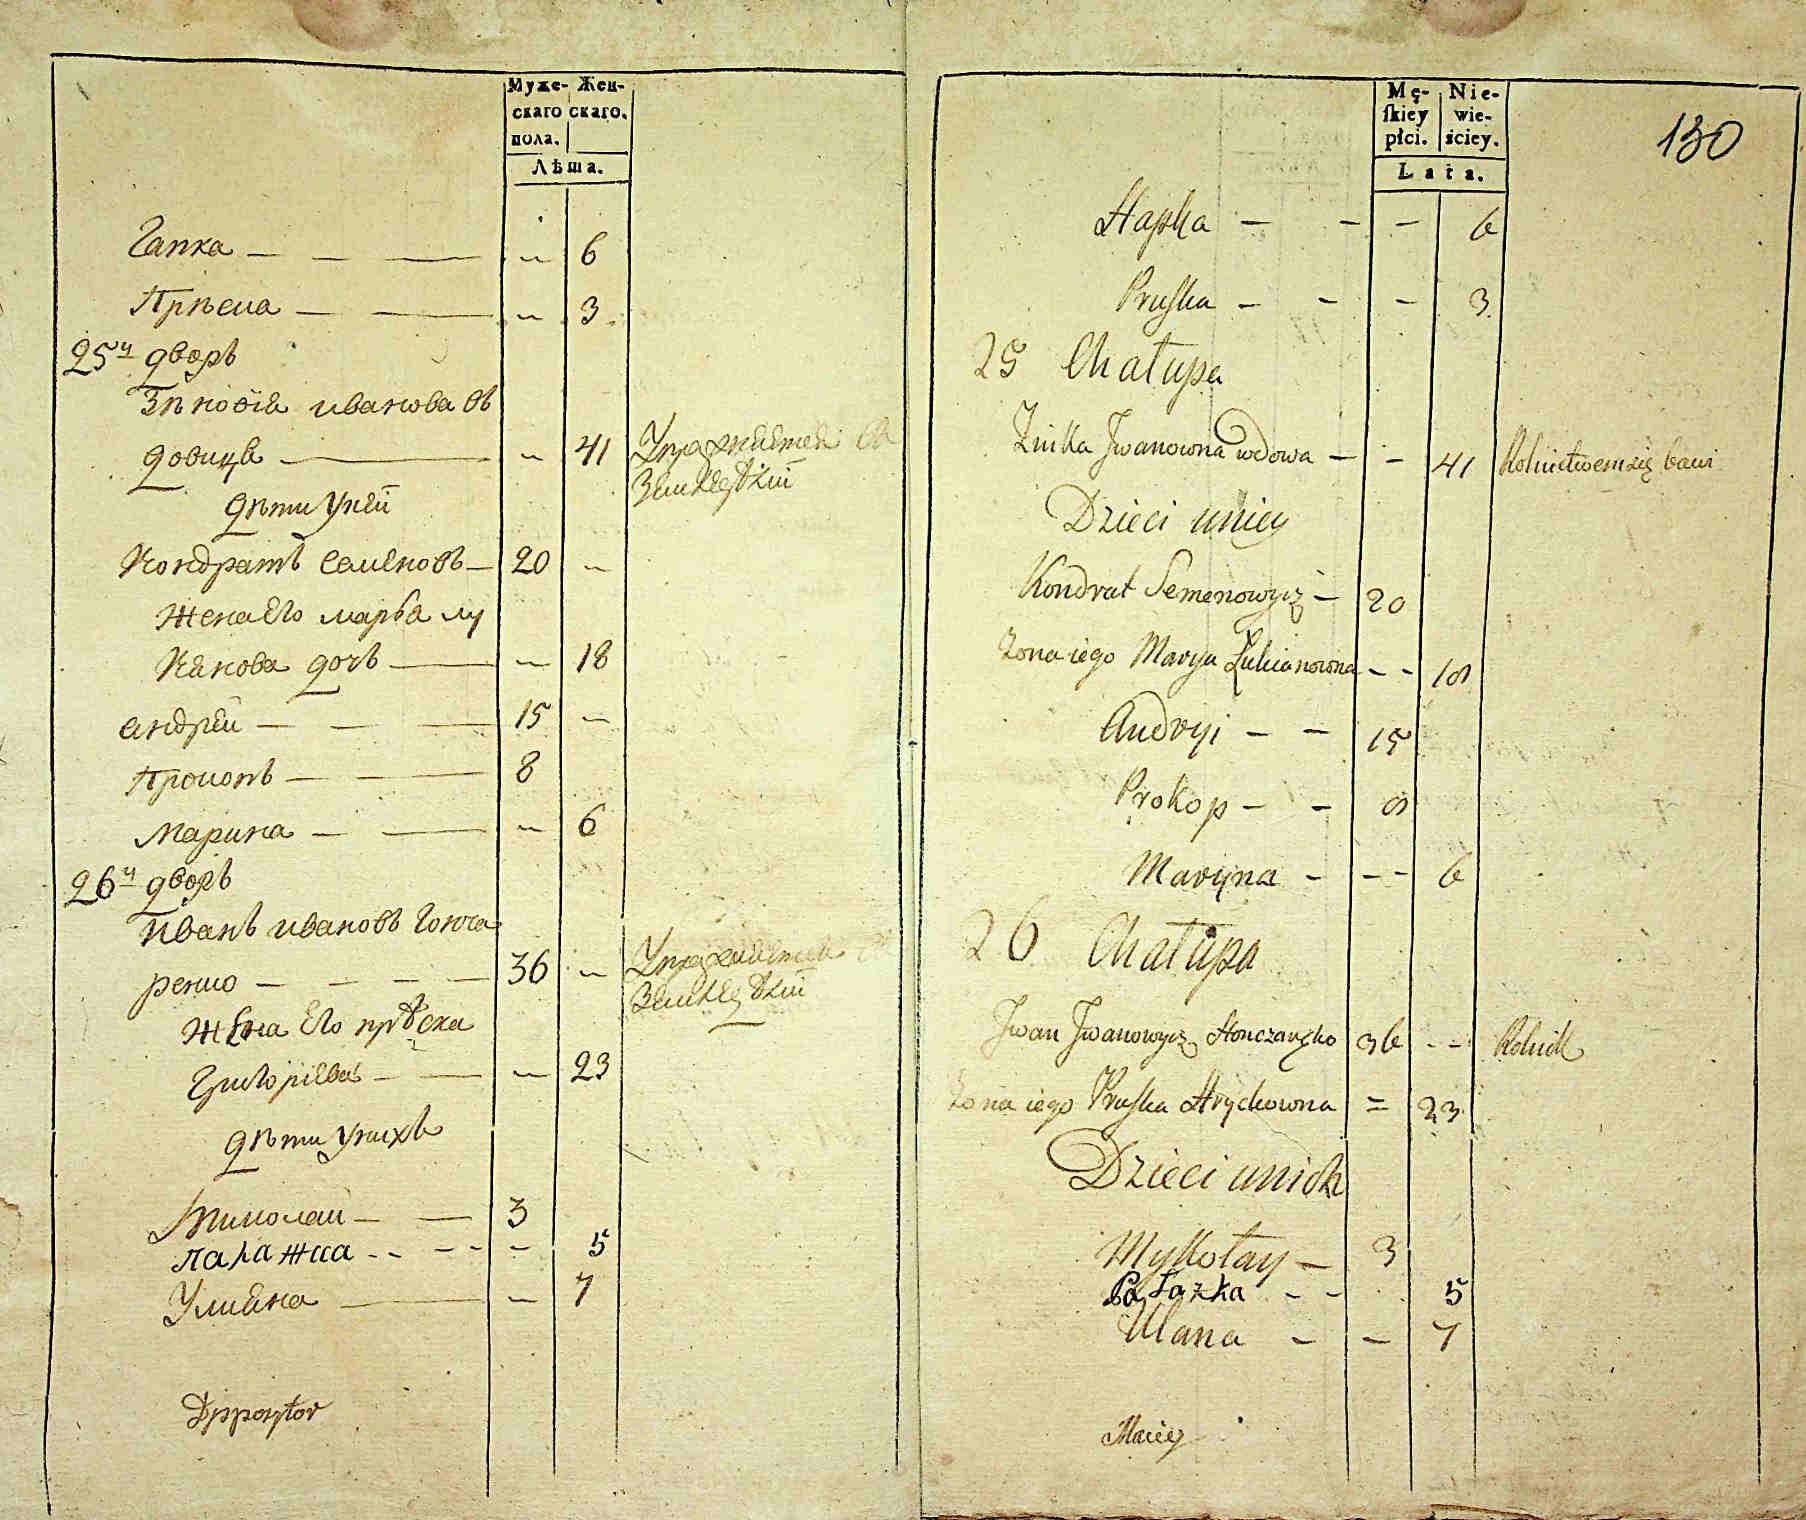 Муже- Жен-
скаго скаго.
пола.
Лѣта.
Гапка — — — " 6
Прѣска — — " 3
25й дворъ
Зѣновія иванова въ
довица — " 41 Упражняется въ
Земледѣліи
дѣти Унеи
Кондратъ семеновъ — 20 "
Жена его марья лу
кянова дочъ — " 18
андрей — — — 15 "
Прокопъ — — — 8
марина — — " 6
26й дворъ
Иванъ ивановъ Гонча
ренко — — — — 36 " Упражняется въ
Земледѣліи
Жена его прѣска
Григорієва — — " 23
дѣти Унихъ
Николай — — 3
палажка - - - - - 5
Уляна — " 7
Dyponytor
Mę- Nie-
skiey wie-
płci. ściey.
Lata.
130
Hapka — — — 6
Pruska — — — 3
25 Chałupa
Zinka Jwanowna wdowa — — 41 Rolnictwem się bawi
Dzieci uniey
Kondrat Semenowycz — 20
Zona iego Marya Łukianowna - - 18
Andryi — — 15
Prokop — — 8
Maryna - - - 6
26 Chałupa
Jwan Jwanowycz Honczaręko 36 - - Rolnik
Zona iego Pruska Hryckowna = 23
Dzieci unich
Mykołay — 3
Pałazka - - 5
Ulana — — 7
Maciey